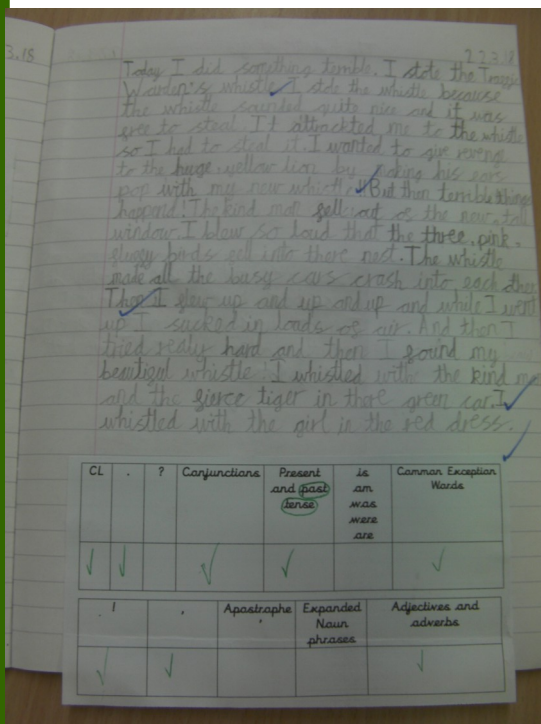 3.18
22.3.18
Today I did something terrible. I stole the Traggic
Warden's whistle. I stole the whistle because
the whistle sounded quite nice and it was
gree to steal. It attrackted me to the whistle
so I had to steal it. I wanted to give revenge
to the huge, yellow lion by making his ears
pop with my new whistle!! But then terrible things
happend! The kind man gell out og the new, tall
window. I blew so loud that the three, pink,
gluggy birds gell into there nest. The whistle
made all the busy cars crash into each other.
Then I glew up and up and up and while I went
up I sucked in loads og air. And then I
tried really hard and then I gound my
beautigul whistle! I whistled with the kind man
and the gierce tiger in there green car. I
whistled with the girl in the red dress.
CL . ? Conjunctions Present and past tense is am was were are Common Exception Words
! , Apostrophe ' Expanded Noun phrases Adjectives and adverbs